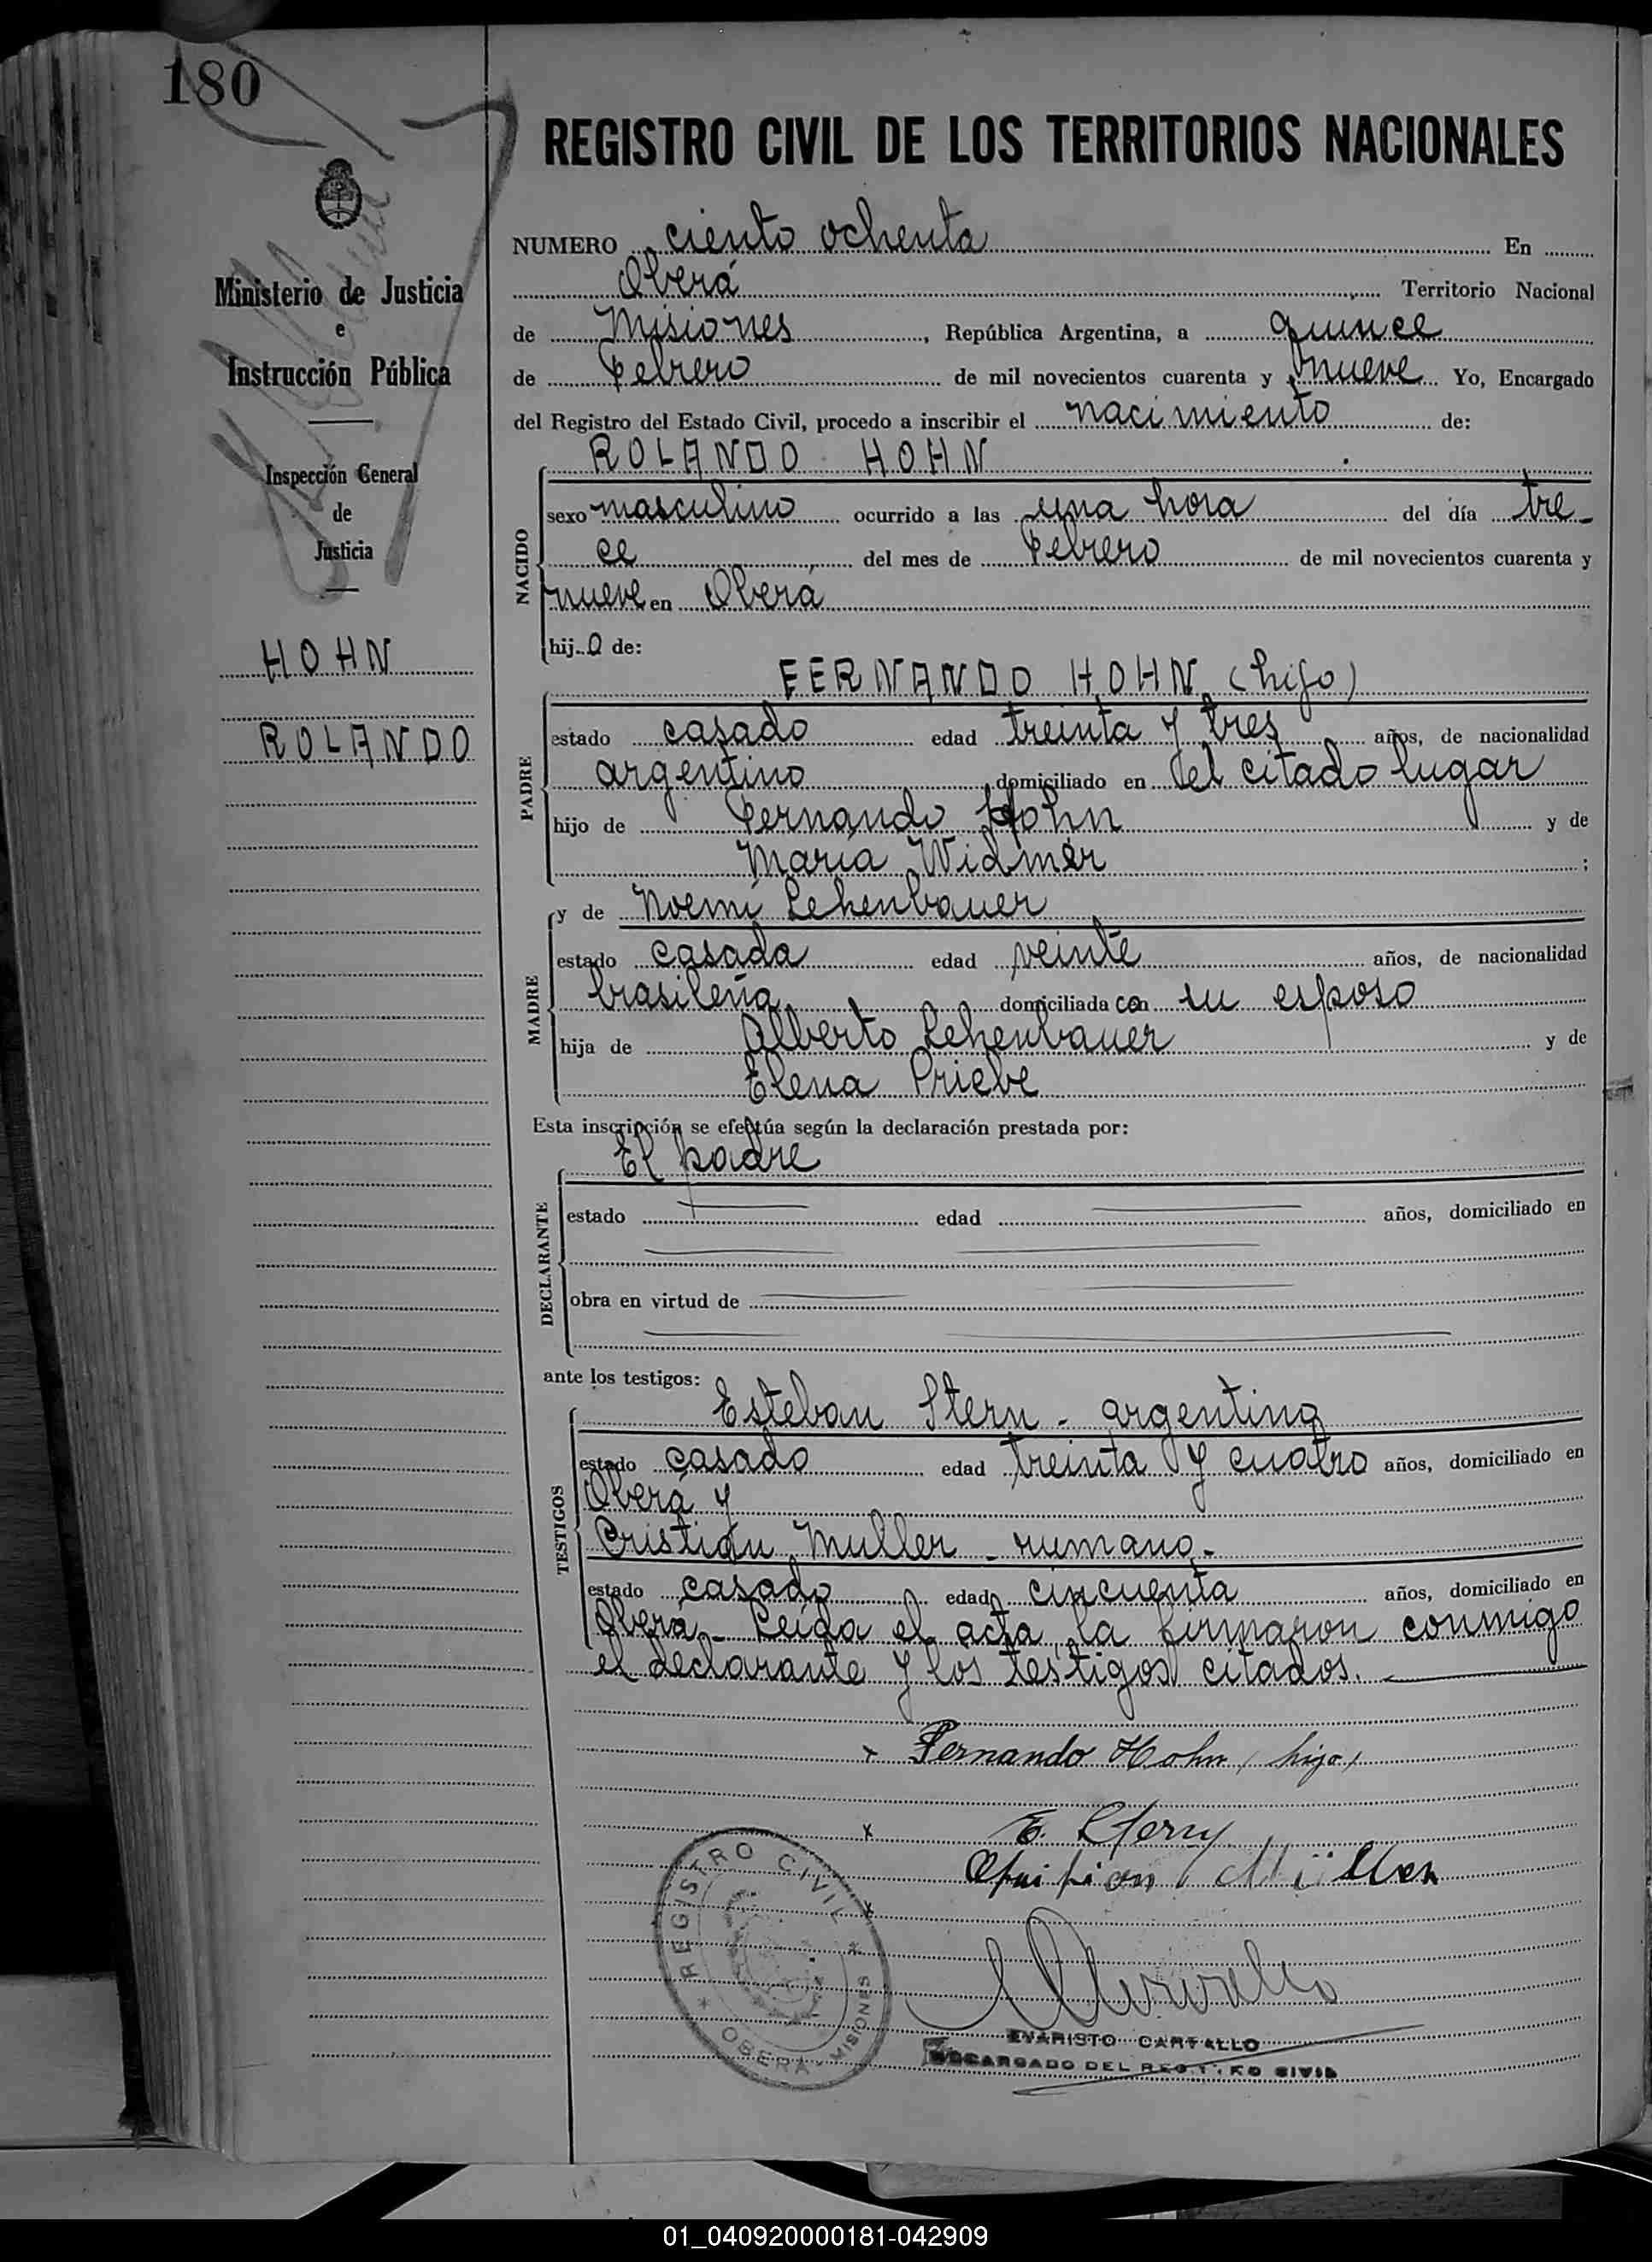 180
REGISTRO CIVIL DE LOS TERRITORIOS NACIONALES
Ministerio de Justicia
e
Instrucción Pública
Inspección General
de
Justicia
HOHN
ROLANDO
NUMERO ciento ochenta En
Oberá Territorio Nacional
de Misiones, República Argentina, a quince
de Febrero de mil novecientos cuarenta y nueve Yo, Encargado
del Registro del Estado Civil, procedo a inscribir el nacimiento de:
ROLANDO HOHN
NACIDO
sexo masculino ocurrido a las una hora del día tre-
ce del mes de Febrero de mil novecientos cuarenta y
nueve en Oberá
hijo de:
FERNANDO HOHN (hijo)
PADRE
estado casado edad treinta y tres años, de nacionalidad
argentino domiciliado en el citado lugar
hijo de Fernando Hohn y de
María Widmer;
y de Noemí Lehenbauer
MADRE
estado casada edad veinte años, de nacionalidad
brasileña domiciliada con su esposo
hija de Alberto Lehenbauer y de
Elena Priebe
Esta inscripción se efectúa según la declaración prestada por:
El padre
DECLARANTE
estado edad años, domiciliado en
obra en virtud de
ante los testigos:
Esteban Stern - argentino
TESTIGOS
estado casado edad treinta y cuatro años, domiciliado en
Oberá y
Cristian Muller - rumano -
estado casado edad cincuenta años, domiciliado en
Oberá - Leída el acta, la firmaron conmigo
el declarante y los testigos citados.
x Fernando Hohn (hijo)
x E. Stern
x Müller
REGISTRO CIVIL
* OBERÁ - MISIONES *
EVARISTO CARVALLO
ENCARGADO DEL REGISTRO CIVIL
01_040920000181-042909